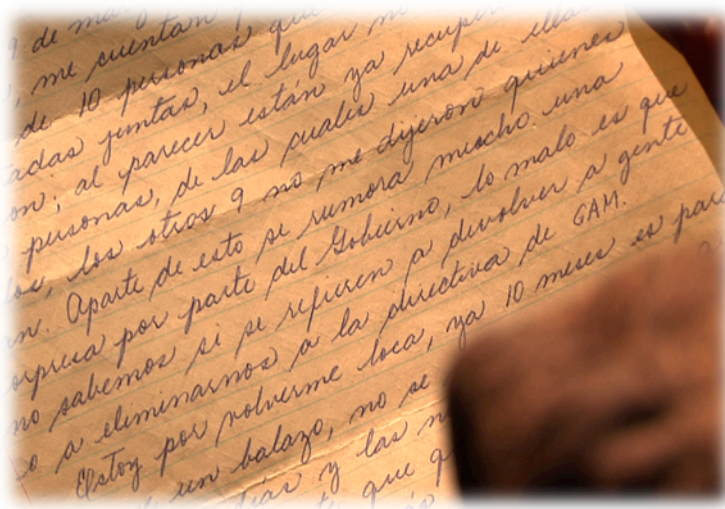 9 de mar
, me cuentan p
de 10 personas que
adas juntas, el lugar no
on; al parecer están ya recuper
personas, de las cuales una de ellas
los, los otros 9 no me dijeron quienes
an. Aparte de esto se rumora mucho una
orpresa por parte del Gobierno, lo malo es que
no sabemos si se refieren a devolver a gente
o a eliminarnos a la directiva de GAM.
Estoy por volverme loca, ya 10 meses es par
un balazo, no se
días y las n
que q